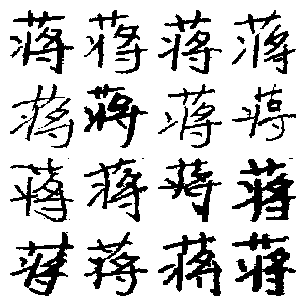 蒋蒋蒋蒋
蒋蒋蒋蒋
蒋蒋蒋蒋
蒋蒋蒋蒋